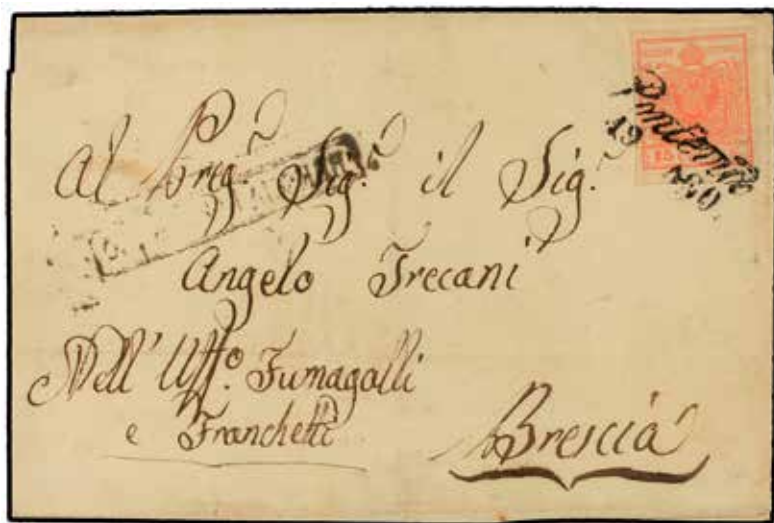 15
19
Al Preg.º Sig.º il Sig.º
Angelo Trecani
Nell' Uff.º Fumagalli
e Franchetti
Brescia